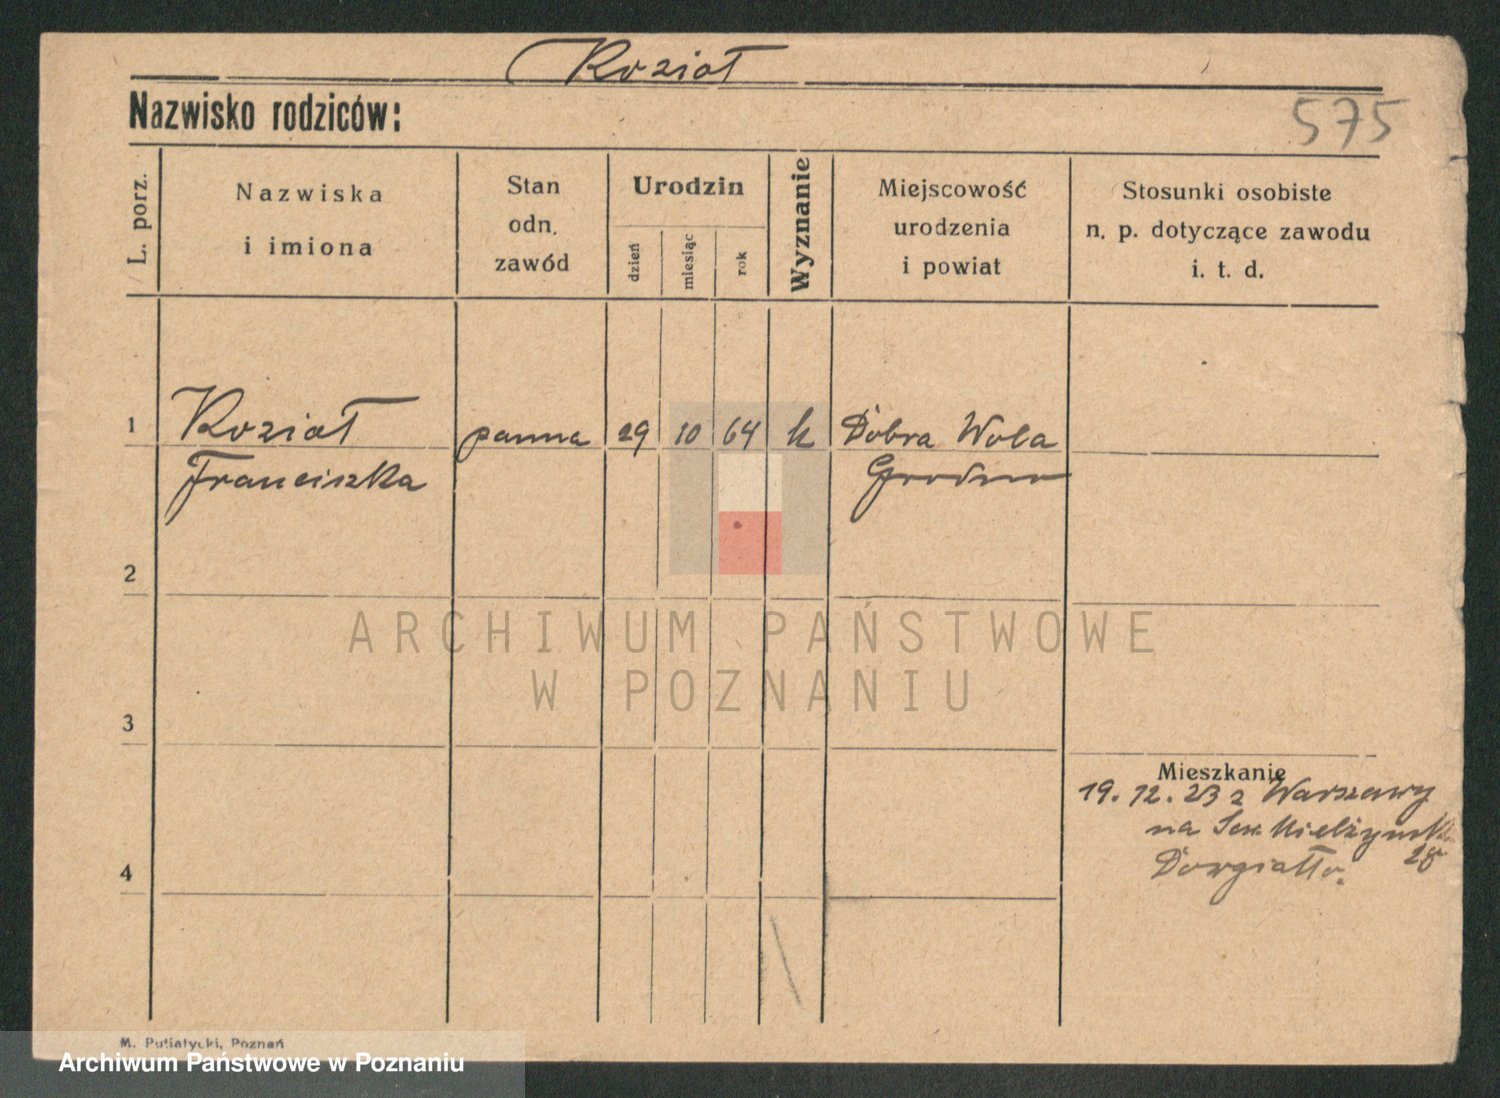 Kozioł
Nazwisko rodziców:
575
L. porz.
Nazwiska
i imiona
Stan
odn.
zawód
Urodzin
dzień
miesiąc
rok
Wyznanie
Miejscowość
urodzenia
i powiat
Stosunki osobiste
n. p. dotyczące zawodu
i. t. d.
1
Kozioł panna 29 10 64 k Dobra Wola
Franciszka Grodno
2
ARCHIWUM PAŃSTWOWE
W POZNANIU
3
Mieszkanie
19. 12. 23 z Warszawy
na Sew Mielżyńsk
28
Dowgiałło.
4
M. Putiatycki, Poznań
Archiwum Państwowe w Poznaniu